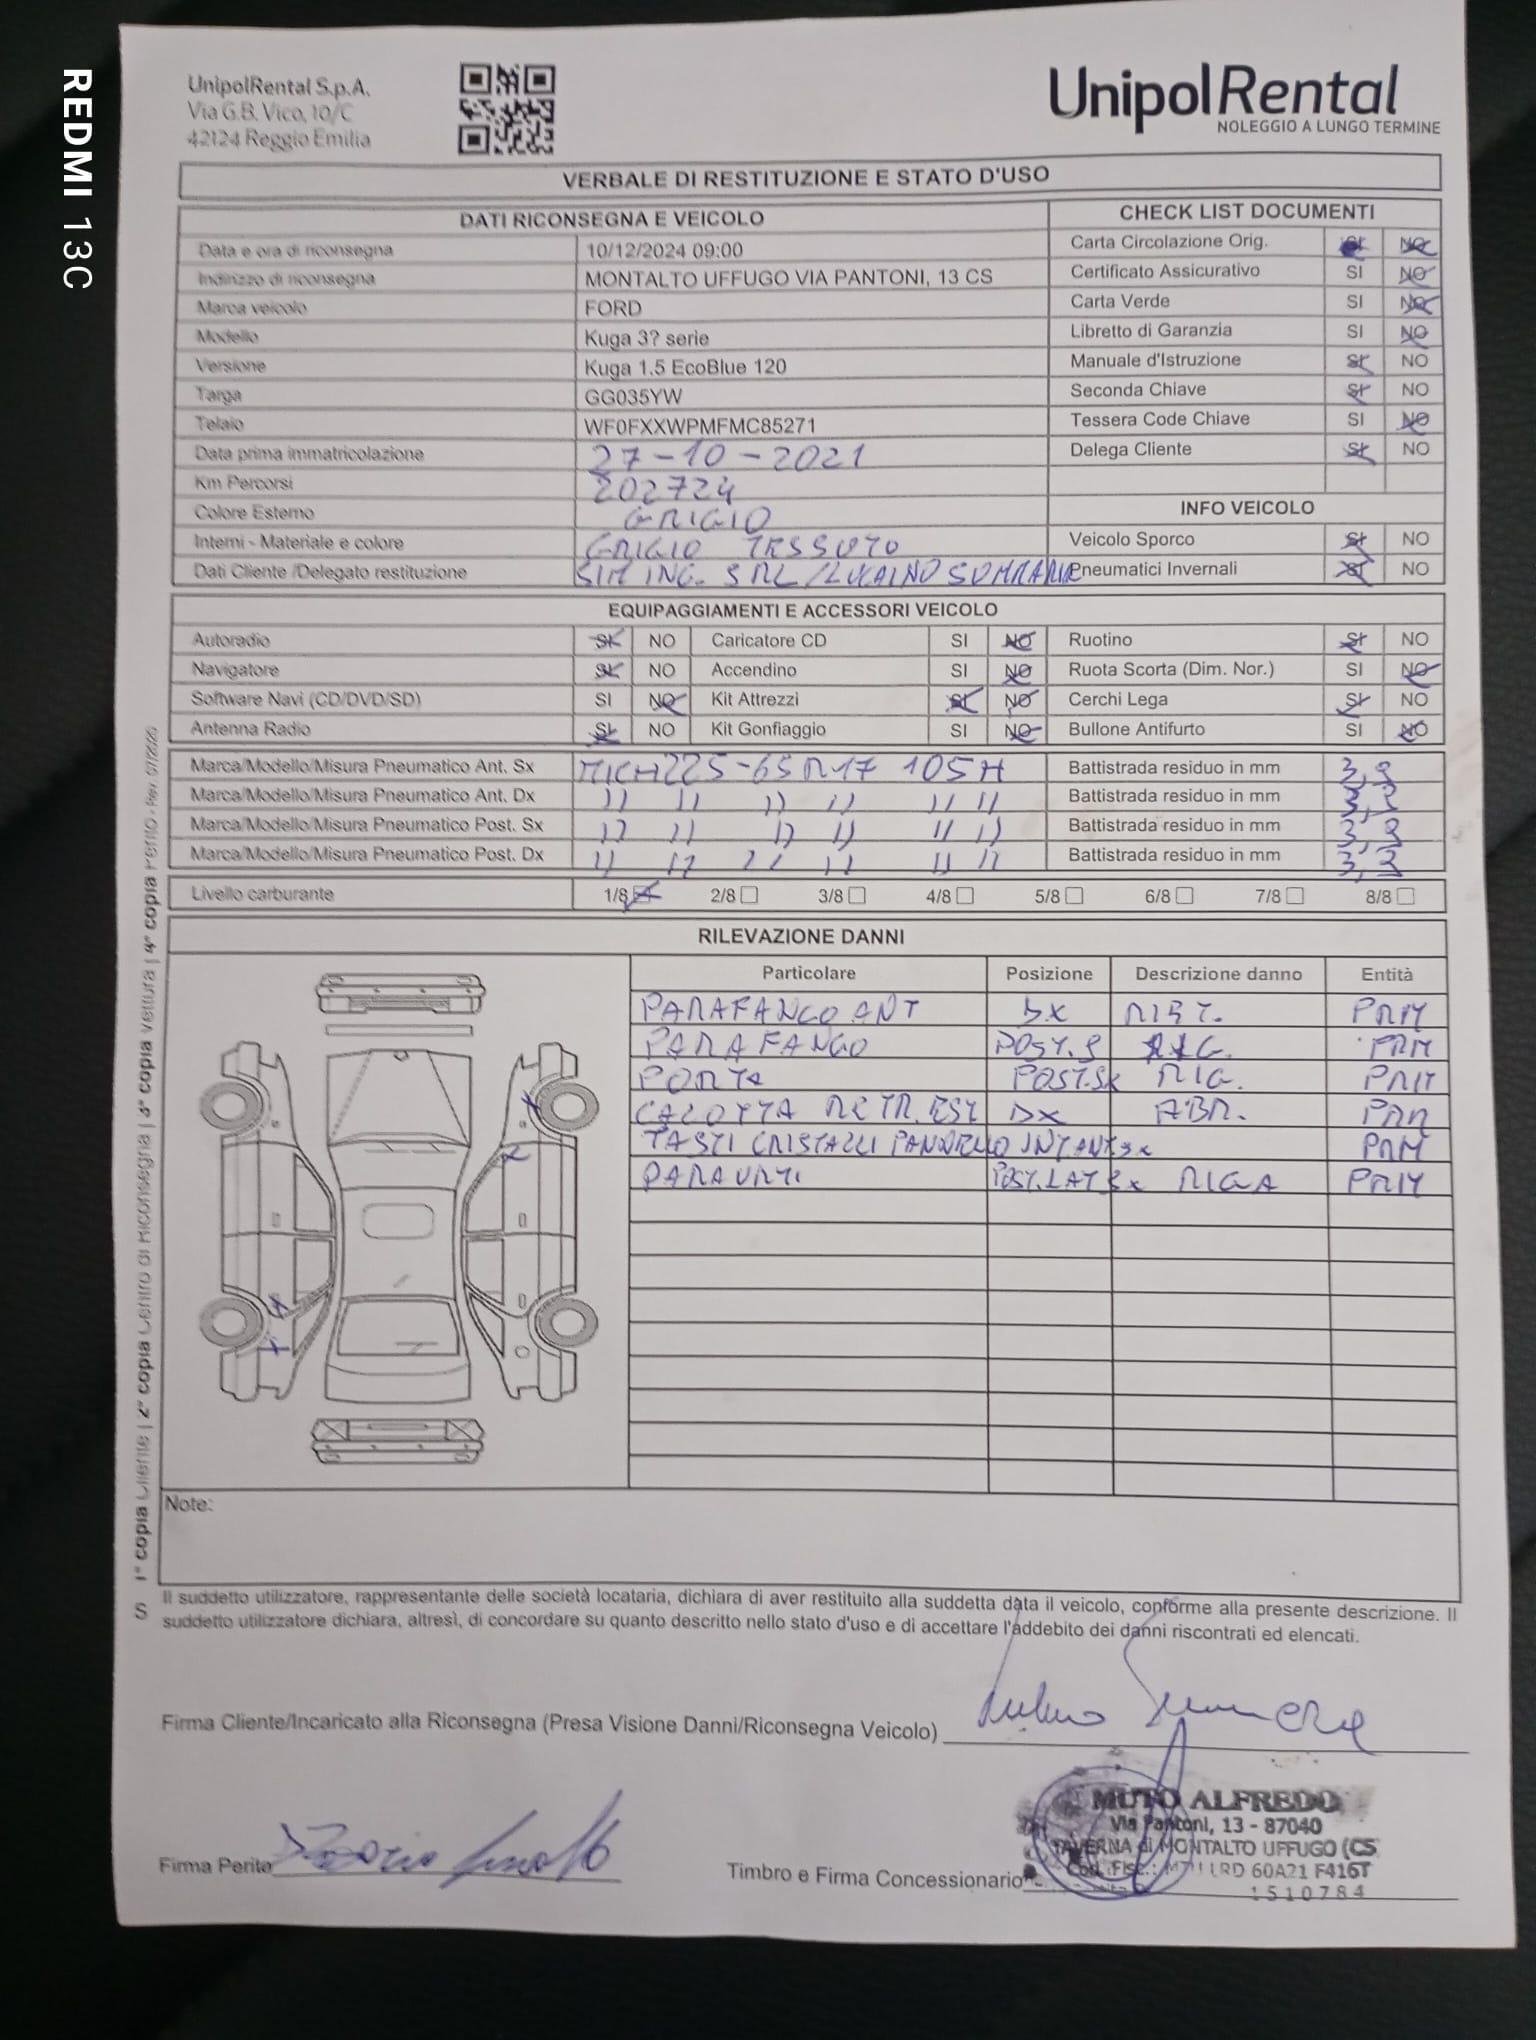 REDMI 13C
UnipolRental S.p.A.
Via G.B. Vico, 10/C
42124 Reggio Emilia
UnipolRental
NOLEGGIO A LUNGO TERMINE
VERBALE DI RESTITUZIONE E STATO D'USO
DATI RICONSEGNA E VEICOLO
Data e ora di riconsegna 10/12/2024 09:00
Indirizzo di riconsegna MONTALTO UFFUGO VIA PANTONI, 13 CS
Marca veicolo FORD
Modello Kuga 3? serie
Versione Kuga 1.5 EcoBlue 120
Targa GG035YW
Telaio WF0FXXWPMFMC85271
Data prima immatricolazione 27-10-2021
Km Percorsi 202724
Colore Esterno GRIGIO
Interni - Materiale e colore GRIGIO TESSUTO
Dati Cliente /Delegato restituzione SIM ING. SRL /
CHECK LIST DOCUMENTI
Carta Circolazione Orig. SI NO
Certificato Assicurativo SI NO
Carta Verde SI NO
Libretto di Garanzia SI NO
Manuale d'Istruzione SI NO
Seconda Chiave SI NO
Tessera Code Chiave SI NO
Delega Cliente SI NO
INFO VEICOLO
Veicolo Sporco SI NO
Pneumatici Invernali SI NO
EQUIPAGGIAMENTI E ACCESSORI VEICOLO
Autoradio SI NO Caricatore CD SI NO Ruotino SI NO
Navigatore SI NO Accendino SI NO Ruota Scorta (Dim. Nor.) SI NO
Software Navi (CD/DVD/SD) SI NO Kit Attrezzi SI NO Cerchi Lega SI NO
Antenna Radio SI NO Kit Gonfiaggio SI NO Bullone Antifurto SI NO
Marca/Modello/Misura Pneumatico Ant. Sx MICH 225-65 R17 105H Battistrada residuo in mm
Marca/Modello/Misura Pneumatico Ant. Dx 11 11 11 11 11 11 Battistrada residuo in mm
Marca/Modello/Misura Pneumatico Post. Sx 11 11 11 11 11 11 Battistrada residuo in mm
Marca/Modello/Misura Pneumatico Post. Dx 11 11 11 11 11 11 Battistrada residuo in mm
Livello carburante 1/8 2/8 3/8 4/8 5/8 6/8 7/8 8/8
RILEVAZIONE DANNI
Particolare Posizione Descrizione danno Entità
PARAFANGO ANT DX PRM
PARAFANGO POST.S RIG. PRM
PORTA POST.SX RIG. PRM
CALOTTA RETR. EST DX ABR. PRM
TASTI CRISTALLI PANNELLO INT ANT SX PRM
PARAURTI POST.LAT SX RIGA PRM
Note:
1° copia Cliente | 2° copia Centro di Riconsegna | 3° copia vettura | 4° copia Perito - Rev. 07/2020
S
Il suddetto utilizzatore, rappresentante delle società locataria, dichiara di aver restituito alla suddetta data il veicolo, conforme alla presente descrizione. Il
suddetto utilizzatore dichiara, altresì, di concordare su quanto descritto nello stato d'uso e di accettare l'addebito dei danni riscontrati ed elencati.
Firma Cliente/Incaricato alla Riconsegna (Presa Visione Danni/Riconsegna Veicolo)
Firma Perito
Timbro e Firma Concessionario
MUTO ALFREDO
Via Pantoni, 13 - 87040
TAVERNA di MONTALTO UFFUGO (CS
Cod. Fisc.: LRD 60A21 F416T
1510784